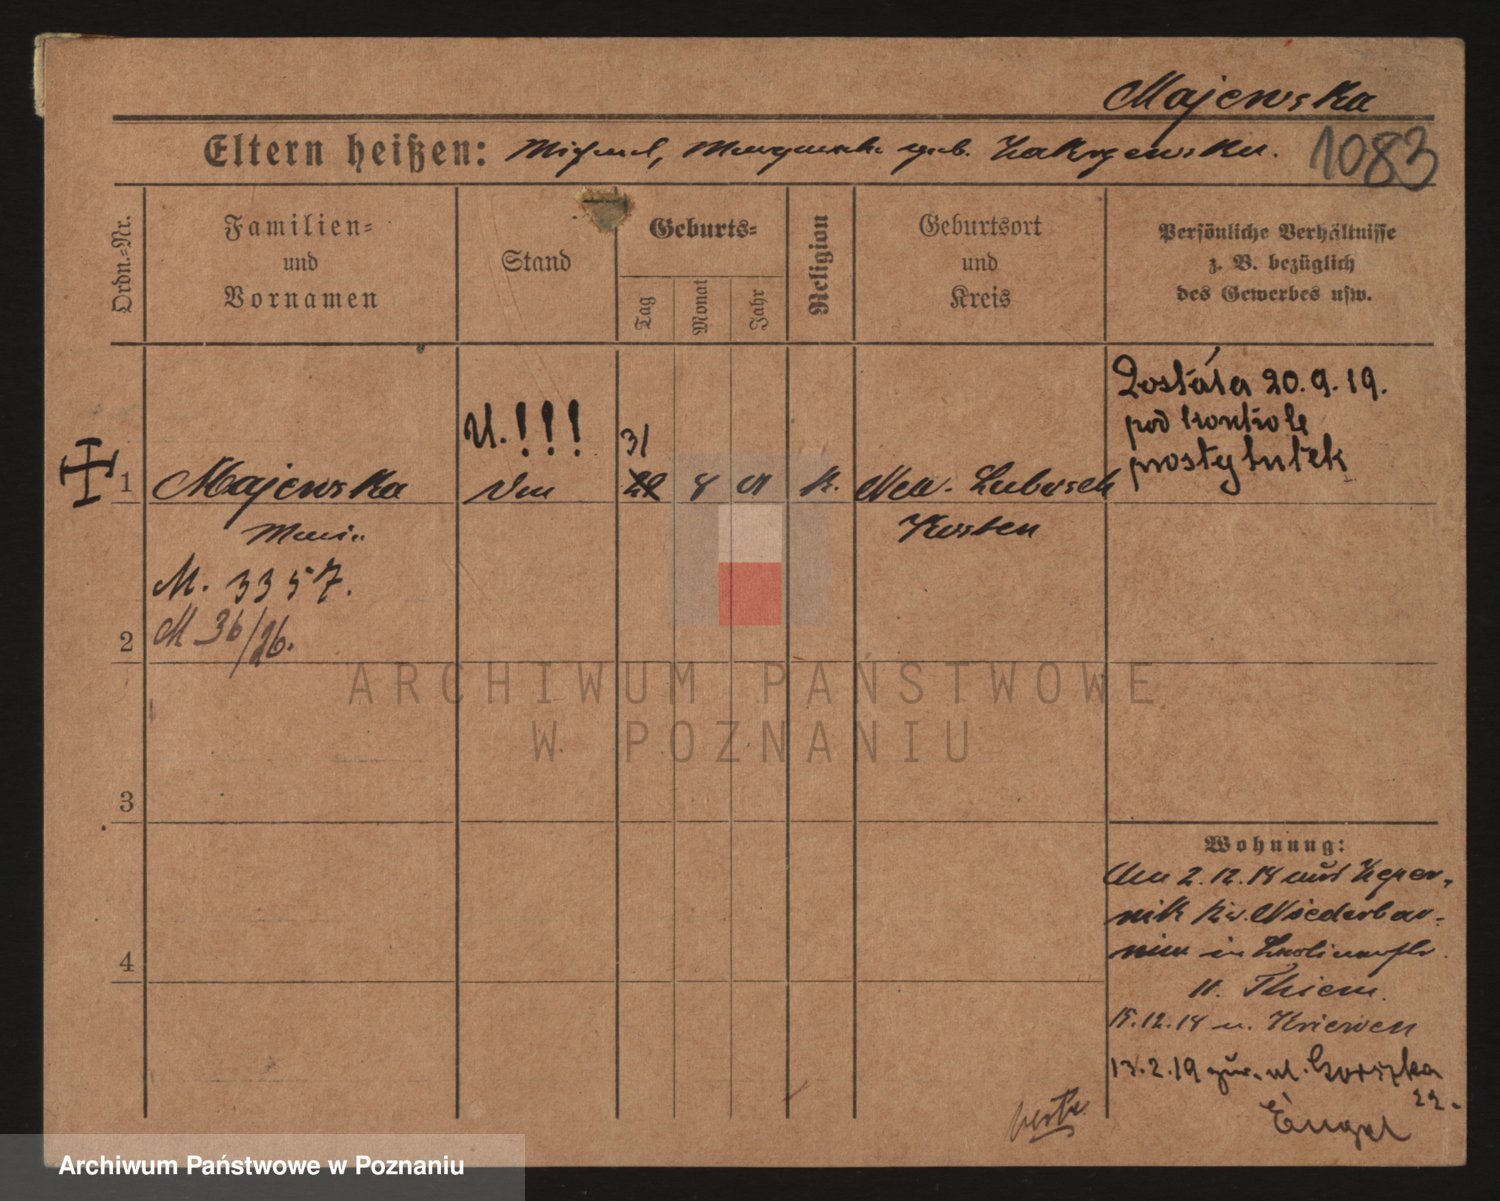 Majewska
Eltern heißen: Michael, geb. Zakrzewska.
1083
Ordn.-Nr.
Familien-
und
Vornamen
Stand
Geburts-
Tag
Monat
Jahr
Religion
Geburtsort
und
Kreis
Persönliche Verhältnisse
z. B. bezüglich
des Gewerbes usw.
Została 20.9.19.
pod kontrole
prostytutek
U.!!!
31
1 Majewska 8 91 k. Neu-Lubosch
Maria Kosten
M. 3357.
2 M 36/26.
3
4
Wohnung:
2.12.18 aus Zeper-
nik Kr. Niederbar-
nim in
11. Thiem.
15.12.18 n. Kriewen
13.2.19 zur. ul. Gorszka
22.
Engel
verte
ARCHIWUM PAŃSTWOWE
W POZNANIU
Archiwum Państwowe w Poznaniu